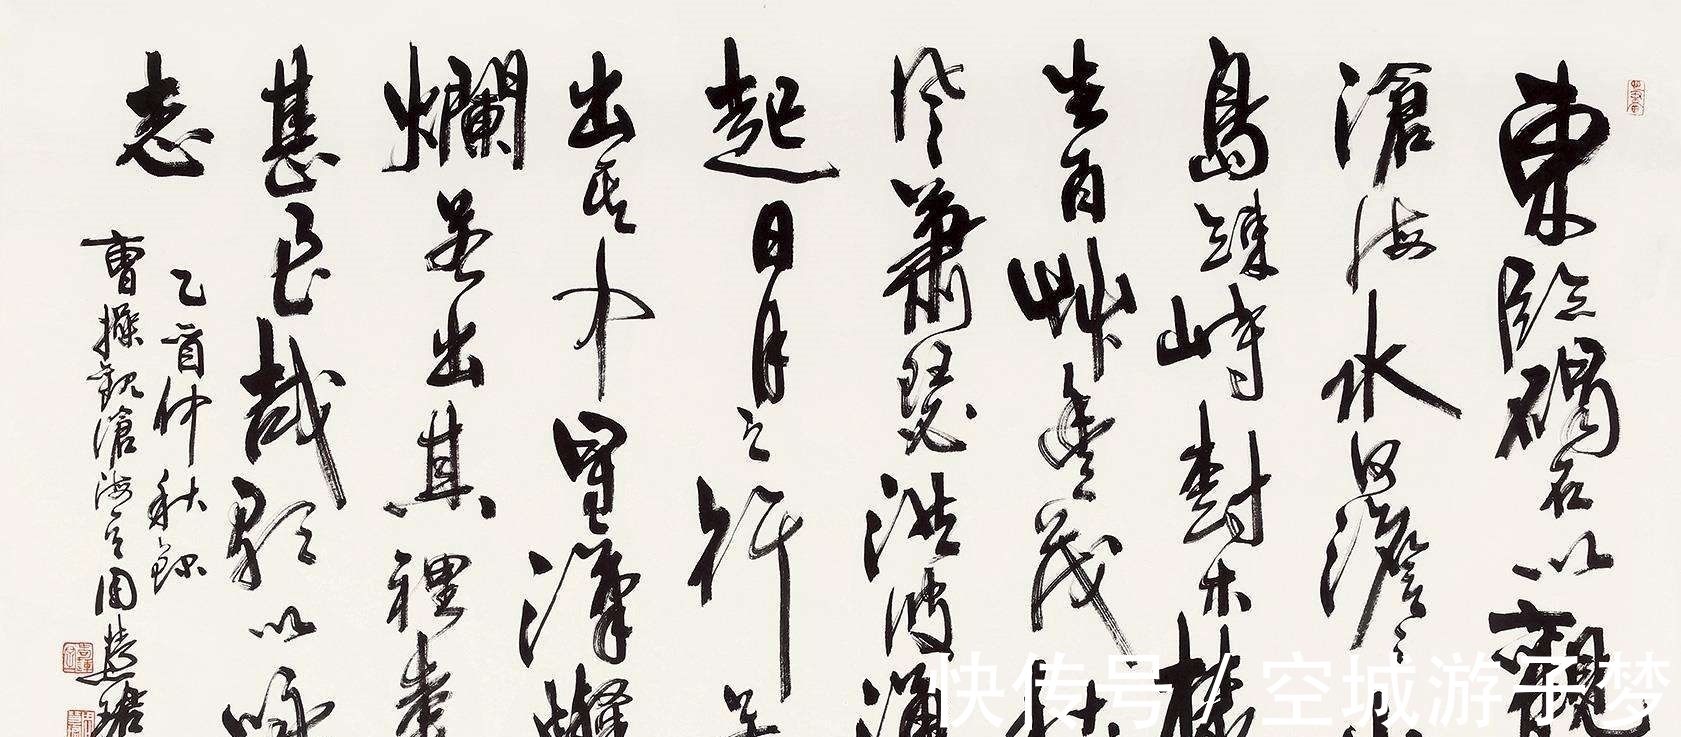 東臨碣石以觀
滄海水何澹々
島竦峙樹木
生百艸豐茂秋
風蕭瑟洪波涌
起日月之行若
出其中星漢燦
爛若出其裡幸
甚至哉歌以詠
志
乙酉仲秋錄
曹操觀滄海 周慧珺
快传号/空城游子梦